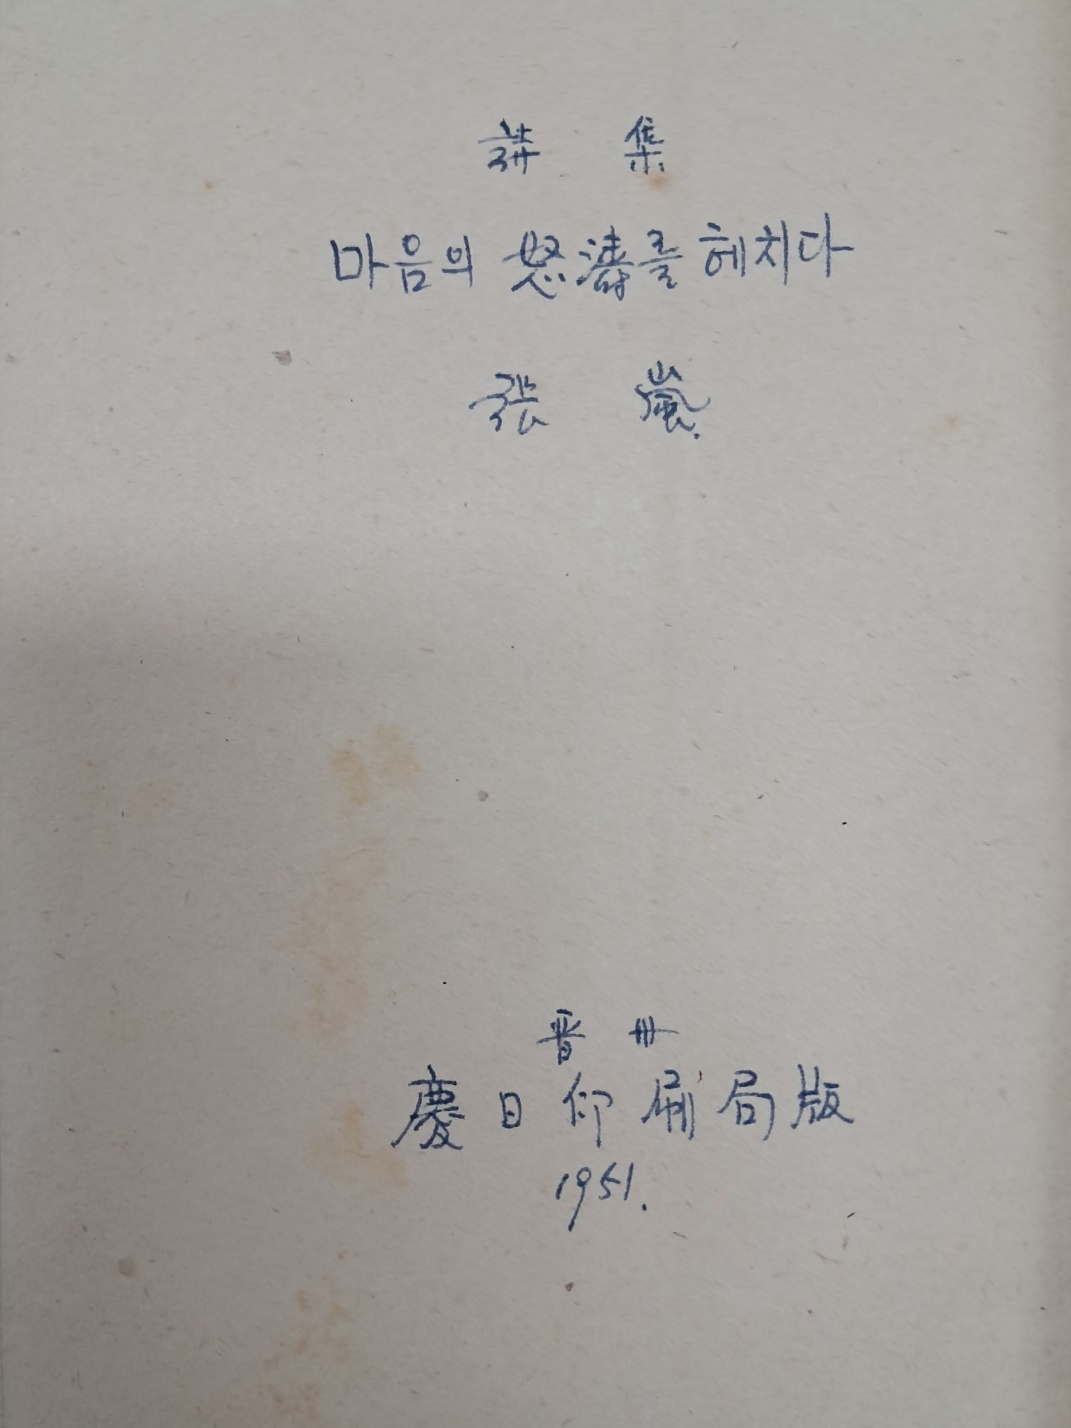 詩 集
마음의 怒濤를 헤치다
張 嵐.
晋州
慶日印刷局版
1951.